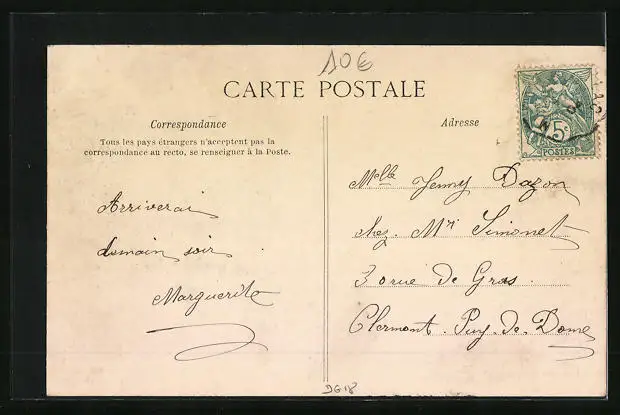 10€
CARTE POSTALE
Correspondance
Tous les pays étrangers n'acceptent pas la
correspondance au recto, se renseigner à la Poste.
Arriverai
demain soir
Marguerite
Adresse
5c
POSTES
Mlle Jenny Dazon
chez Mr Simonet
30 rue de Gras
Clermont. Puy. de. Dome
DG18